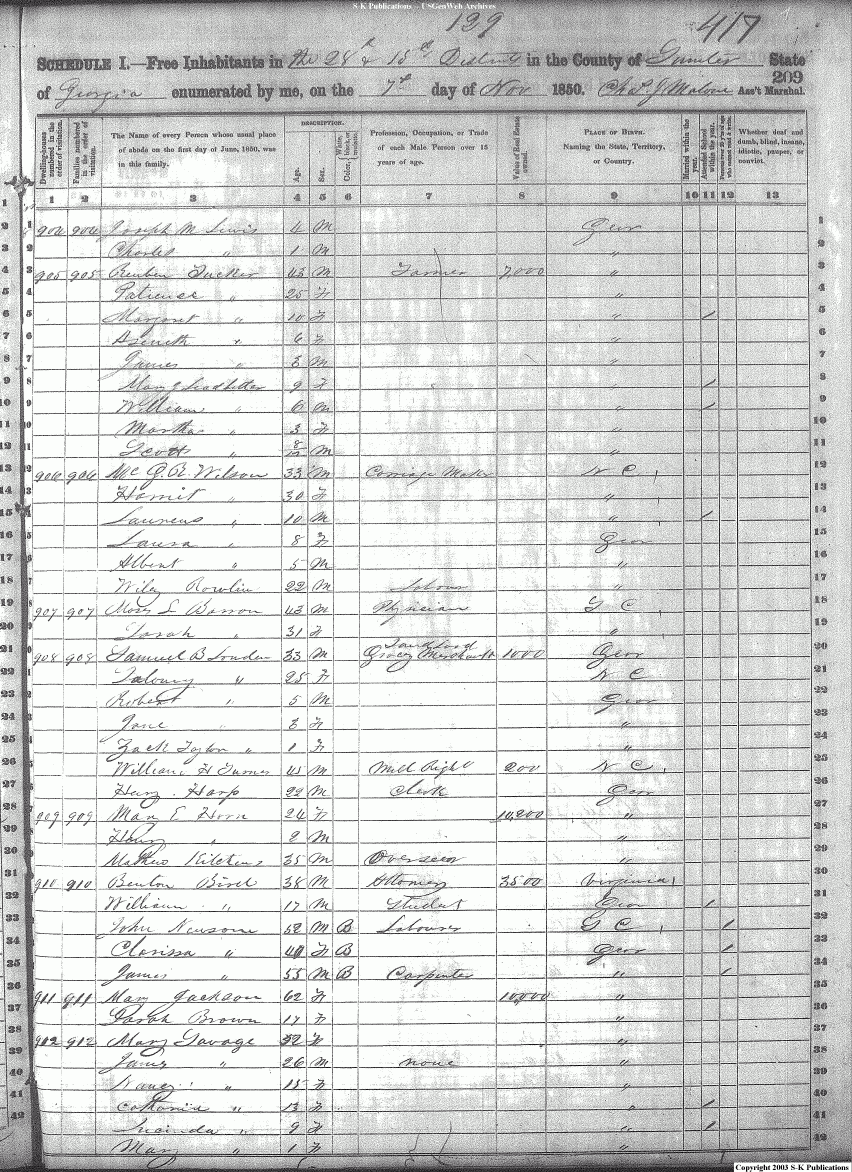 S-K Publications -- USGenWeb Archives
129 417
SCHEDULE I.—Free Inhabitants in the 28th & 15th District in the County of Sumter State
of Georgia enumerated by me, on the 7th day of Nov 1850. Chas. J Malone Ass't Marshal.
209
DESCRIPTION.
Dwelling-houses numbered in the order of visitation.
Families numbered in the order of visitation.
The Name of every Person whose usual place of abode on the first day of June, 1850, was in this family.
Age.
Sex.
Color, White, black, or mulatto.
Profession, Occupation, or Trade of each Male Person over 15 years of age.
Value of Real Estate owned.
PLACE OF BIRTH. Naming the State, Territory, or Country.
Married within the year.
Attended School within the year.
Persons over 20 years of age who cannot read & write.
Whether deaf and dumb, blind, insane, idiotic, pauper, or convict.
1 2 3 4 5 6 7 8 9 10 11 12 13
1 904 904 Joseph M Lewis 4 M Geor
2 Charles " 1 M "
3 905 905 Reuben Tucker 43 M Farmer 7,000 "
4 Patience " 25 F "
5 Margaret " 10 F " /
6 Aseneth " 6 F "
7 James " 3 M "
8 Mary J Leadbetter 9 F " /
9 William " 6 M " /
10 Martha " 3 F "
11 Scott " 8/12 M "
12 906 906 Mc G. R. Wilson 33 M Carriage Maker N C
13 Harriet " 30 F "
14 Laurens " 10 M " /
15 Laura " 8 F Geor
16 Albert " 5 M "
17 Wiley Rowlin 22 M Labour "
18 907 907 Moses L Barron 43 M Physician S C
19 Sarah " 31 F "
20 908 908 Samuel B 33 M Landlord Grocery Merchant 1000 Geor
21 " 25 F N C
22 Robert " 5 M Geor
23 Jane " 3 F "
24 Zack Taylor " 1 F "
25 William H Turner 45 M Mill Right 200 N C
26 Harp 22 M Clerk Geor
27 909 909 Mary E Horn 24 F 10,200 "
28 Henry " 2 M "
29 Mathew Kitchens 35 M Overseer "
30 910 910 Benton Bird 38 M Attorney 3500 Virginia
31 William " 17 M Student Geor /
32 John Newsom 52 M B Labourer S C /
33 Clarissa " 40 F B Geor /
34 James " 55 M B Carpenter " /
35 911 911 Mary Jackson 62 F 10,000 "
36 Sarah Brown 17 F "
37 912 912 Mary Savage 52 F "
38 James " 26 M none "
39 Nancy " 15 F "
40 " 13 F " /
41 Lucinda " 9 F " /
42 Mary " 1 F "
Copyright 2003 S-K Publications